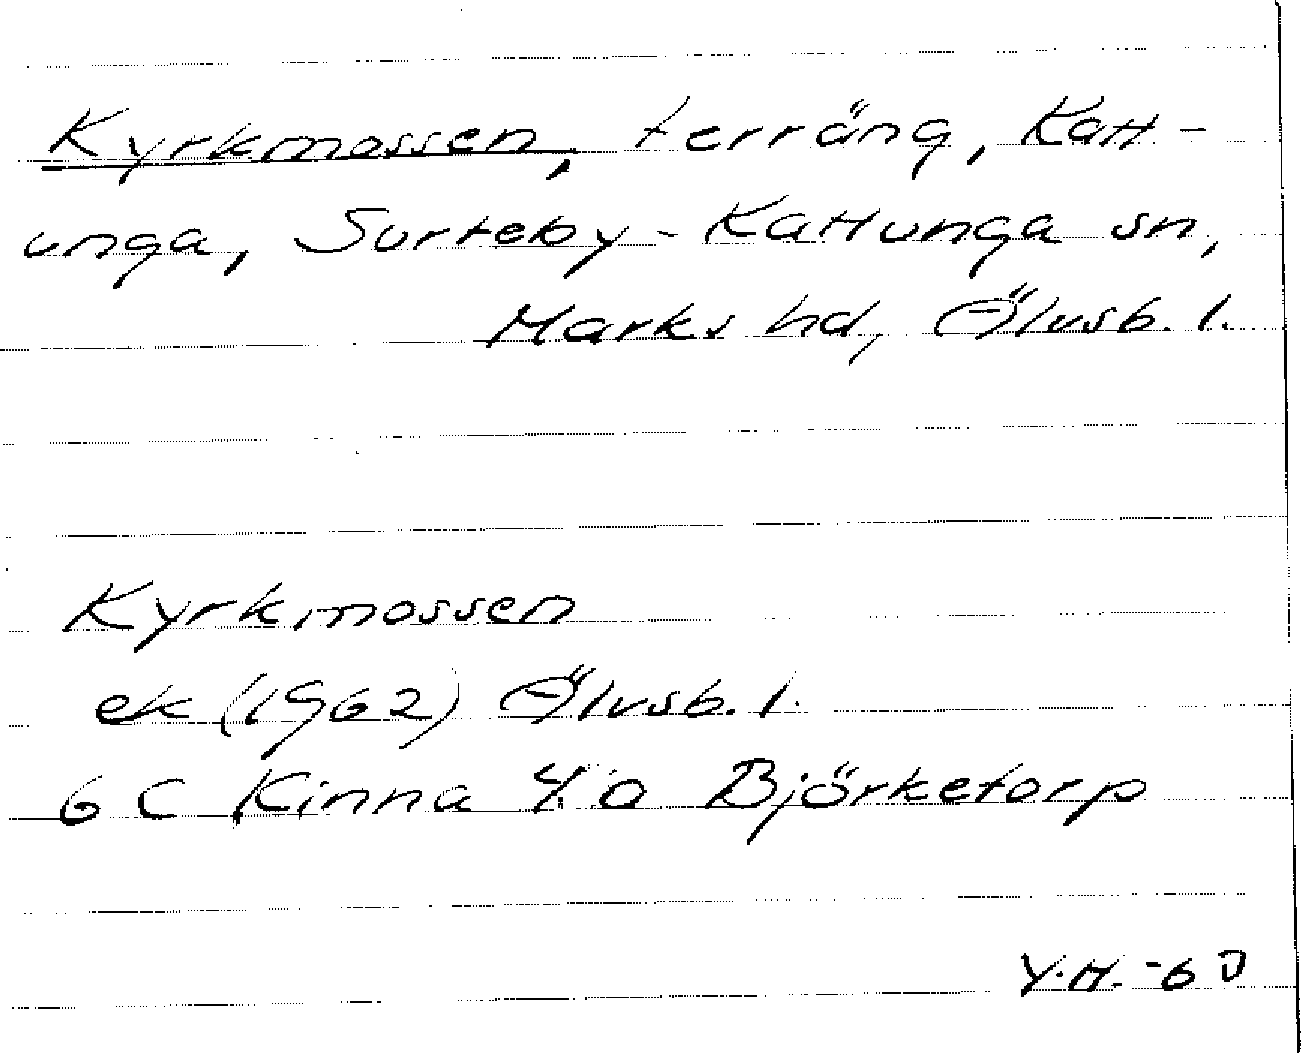 Kyrkmossen, terräng, Katt-
unga, Surteby-Kattunga sn,
Marks hd, Älvsb. l.
Kyrkmossen
ek (1962) Älvsb. l.
6 C Kinna Björketorp
Y.H.